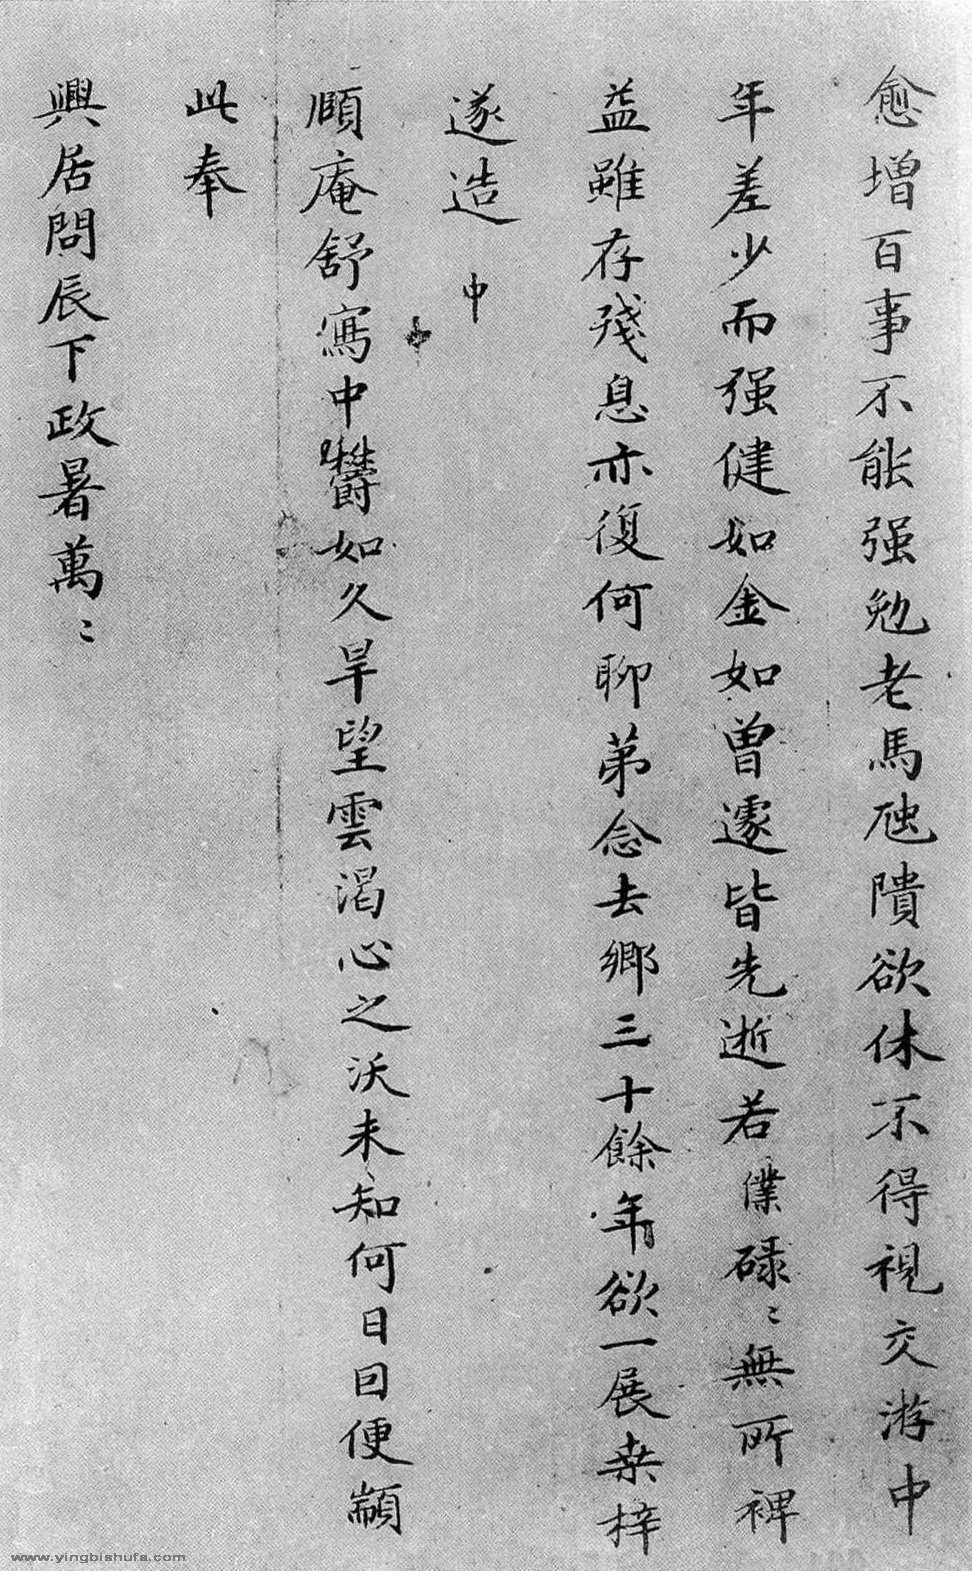 愈增百事不能强勉老馬虺隤欲休不得視交游中
年差少而强健如金如曾遽皆先逝若僕碌〻無所裨
益雖存殘息亦復何聊弟念去鄉三十餘年欲一展桒梓
遂造 中
頤庵舒寫中欝如久旱望雲渴心之沃未知何日回便顓
此奉
興居問辰下政暑萬〻
www.yingbishufa.com